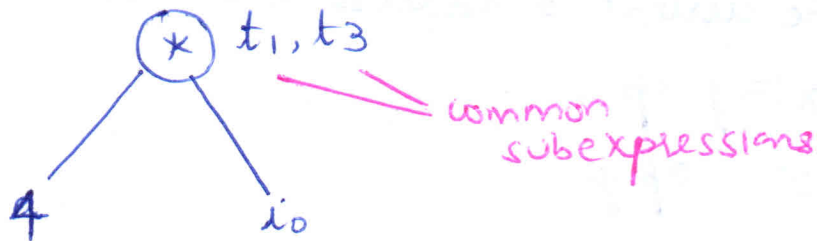 * t1, t3
common
subexpressions
4 i0